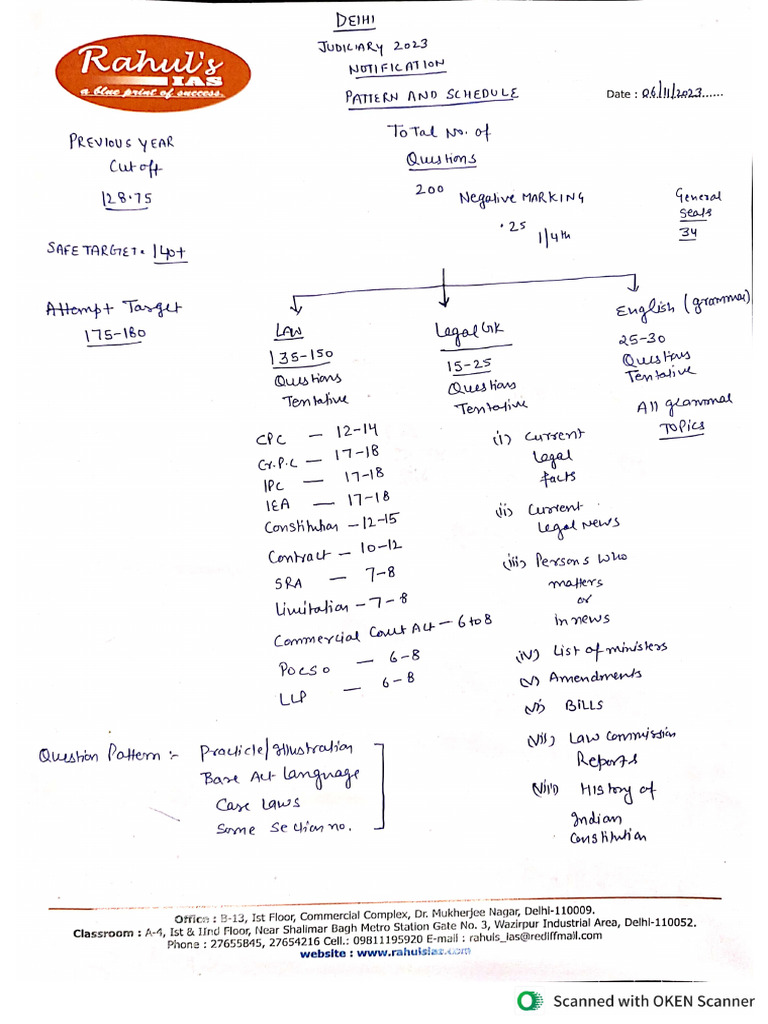 DElHI
JUDICIARY 2023
NOTIFICATION
PATTERN AND SCHEDULE
Rahul's
IAS
a blue print of success.
Date : 06/11/2023......
PREVIOUS YEAR
Cut off
128.75
SAFE TARGET. 140+
Attempt Target
175-180
Total No. of
Questions
200
Negative MARKING
.25
1/4th
General
Seats
34
LAW
135-150
Questions
Tentative
CPC — 12-14
Cr.P.C — 17-18
IPC — 17-18
IEA — 17-18
Constitution — 12-15
Contract — 10-12
SRA — 7-8
Limitation - 7-8
Commercial Court Act — 6 to 8
POCSO — 6-8
LLP — 6-8
Legal GK
15-25
Questions
Tentative
(i) Current
Legal
facts
(ii) Current
Legal News
(iii) Persons who
matters
or
in news
(iv) List of ministers
(v) Amendments
(vi) BILLS
(vii) Law Commission
Reports
(viii) History of
Indian
Constitution
English (grammar)
25-30
Questions
Tentative
All grammar
TOPICS
Question Pattern :- Practicle/Illustration
Bare Act language
Case Laws
Some Section no.
Office : B-13, Ist Floor, Commercial Complex, Dr. Mukherjee Nagar, Delhi-110009.
Classroom : A-4, Ist & IInd Floor, Near Shalimar Bagh Metro Station Gate No. 3, Wazirpur Industrial Area, Delhi-110052.
Phone : 27655845, 27654216 Cell.: 09811195920 E-mail : rahuls_ias@rediffmail.com
website : www.rahulsias.com
Scanned with OKEN Scanner